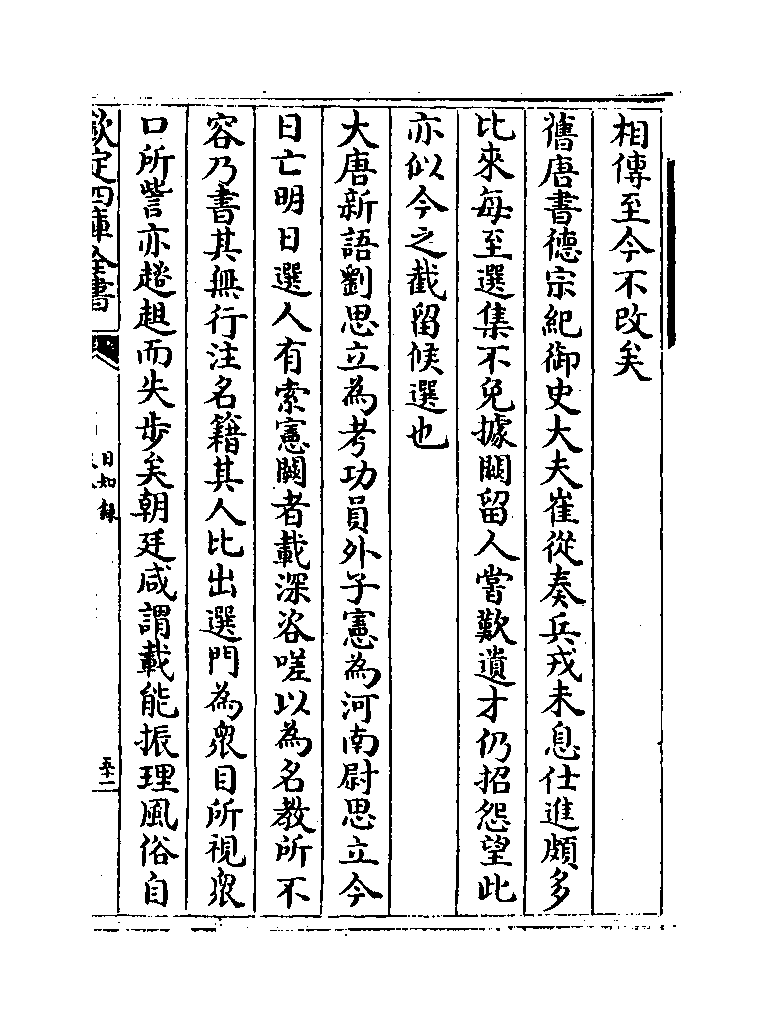 相傳至今不改矣
舊唐書德宗紀御史大夫崔從奏兵戎未息仕進頗多
比來每至選集不免據闕留人嘗歎遺才仍招怨望此
亦似今之截留候選也
大唐新語劉思立為考功員外子憲為河南尉思立今
日亡明日選人有索憲闕者載深咨嗟以為名教所不
容乃書其無行注名籍其人比出選門為衆目所視衆
口所訾亦趦趄而失步矣朝廷咸謂載能振理風俗自
欽定四庫全書
日知錄
五十二